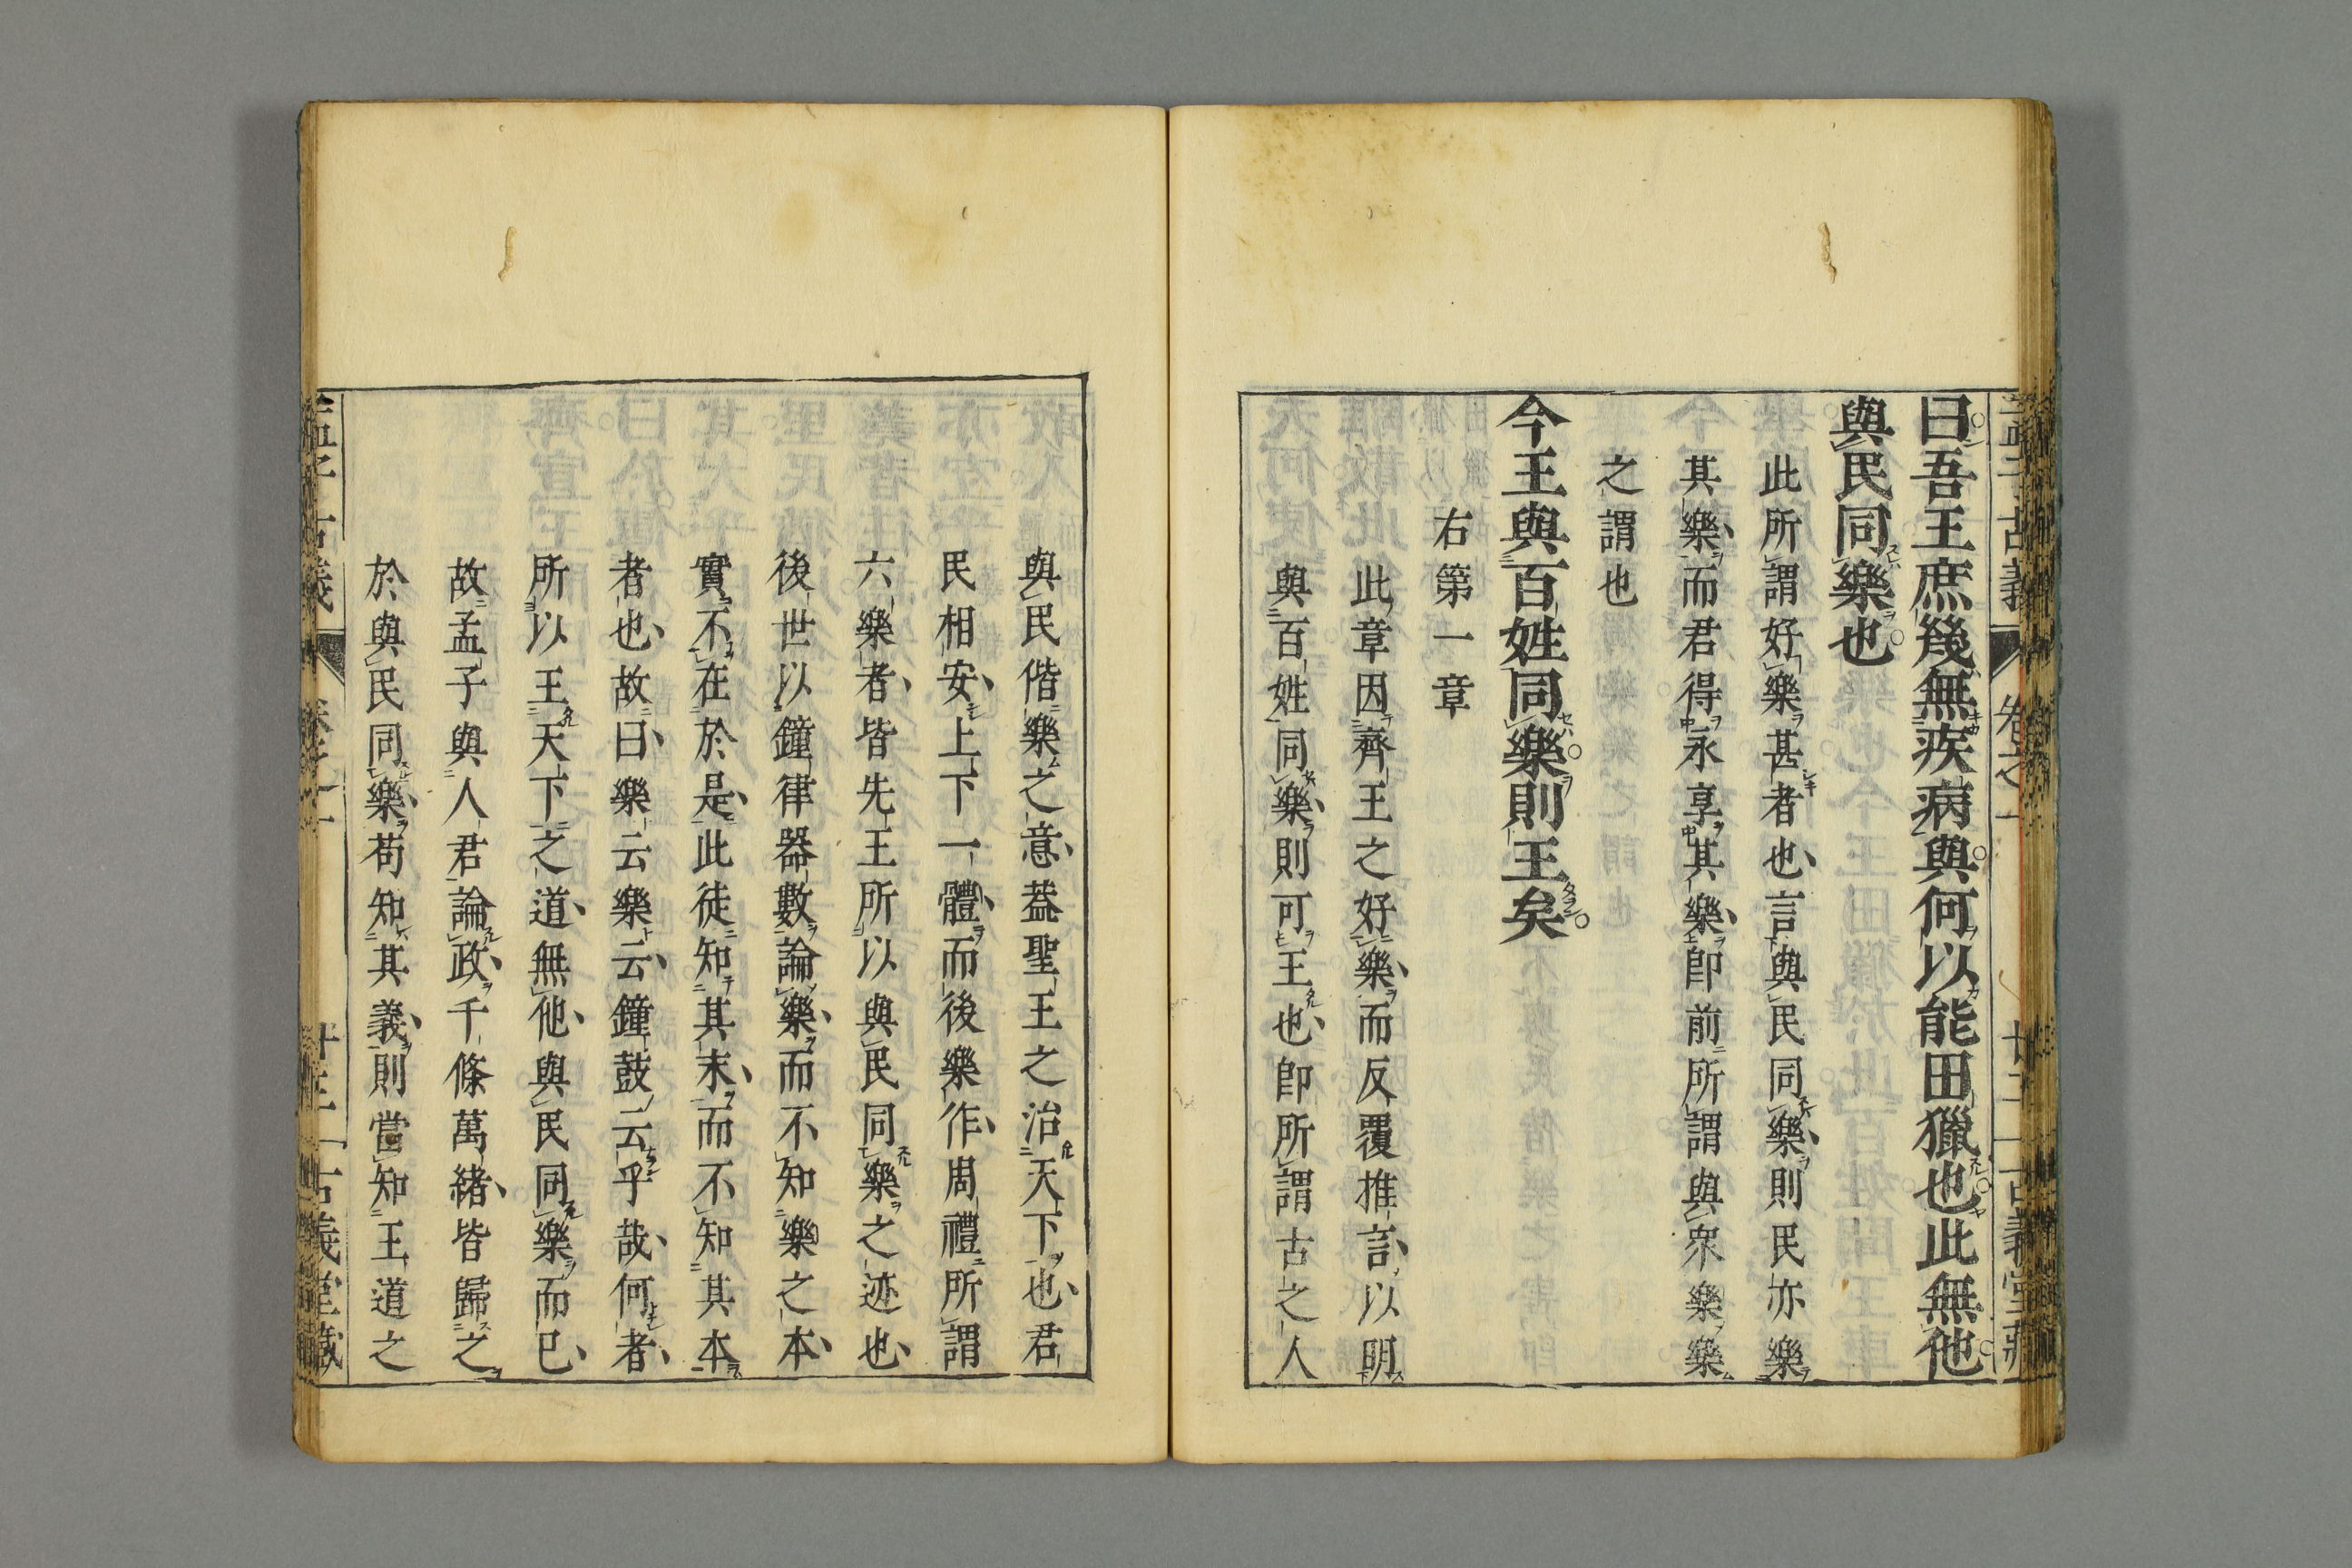 曰吾王庶幾無疾病與何以能田獵也此無他
與民同樂也
此所謂好樂甚者也言與民同樂則民亦樂
其樂而君得永享其樂卽前所謂與衆樂樂
之謂也
今王與百姓同樂則王矣
右第一章
此章因齊王之好樂而反覆推言以明
與百姓同樂則可王也卽所謂古之人
與民偕樂之意蓋聖王之治天下也君
民相安上下一體而後樂作周禮所謂
六樂者皆先王所以與民同樂之迹也
後世以鐘律器數論樂而不知樂之本
實不在於是此徒知其末而不知其本
者也故曰樂云樂云鐘鼓云乎哉何者
所以王天下之道無他與民同樂而已
故孟子與人君論政千條萬緖皆歸之
於與民同樂苟知其義則當知王道之